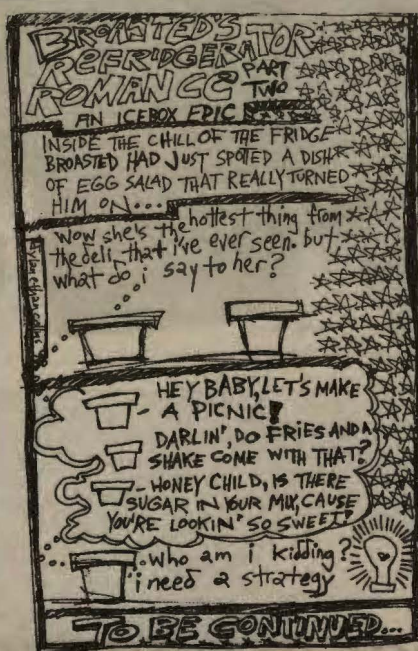 BROASTED'S
REFRIDGERATOR
ROMANCE PART
TWO
AN ICEBOX EPIC
INSIDE THE CHILL OF THE FRIDGE
BROASTED HAD JUST SPOTED A DISH
OF EGG SALAD THAT REALLY TURNED
HIM ON...
wow she's the hottest thing from
the deli that i've ever seen. but
what do i say to her?
HEY BABY, LET'S MAKE
A PICNIC!
DARLIN', DO FRIES AND A
SHAKE COME WITH THAT?
HONEY CHILD, IS THERE
SUGAR IN YOUR MIX, CAUSE
YOU'RE LOOKIN' SO SWEET!
who am i kidding?
i need a strategy
TO BE CONTINUED...